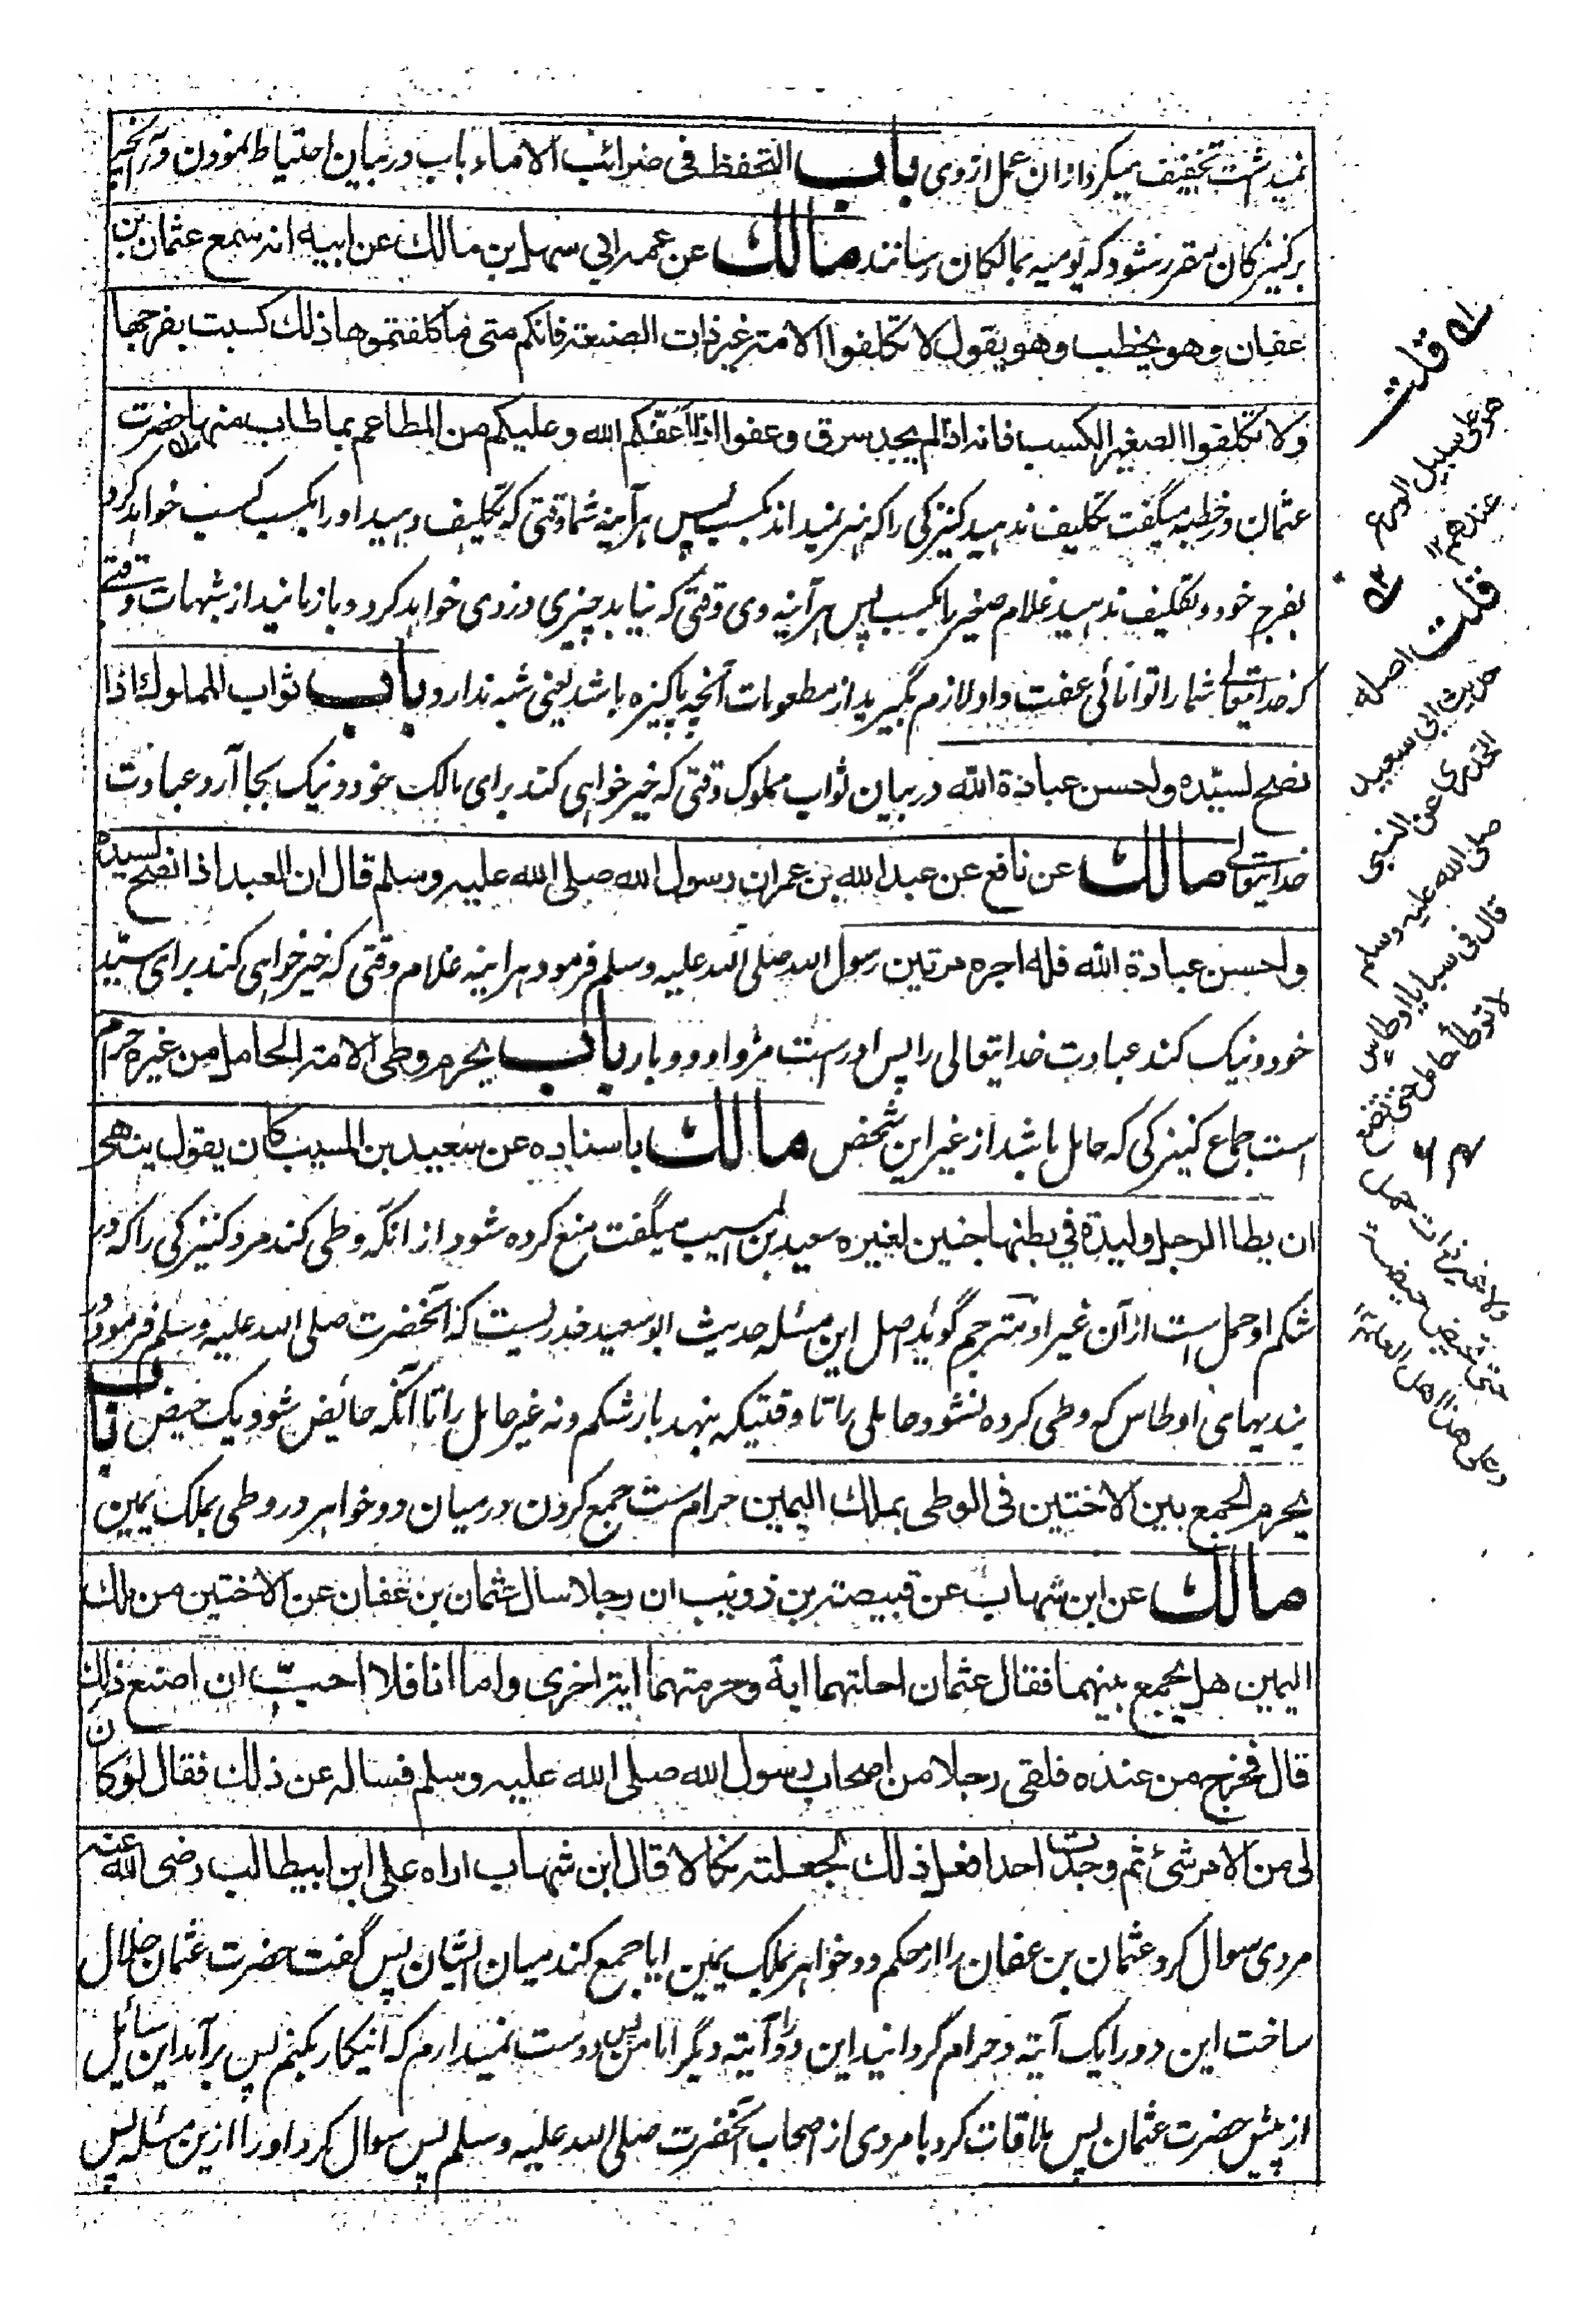 نمیداشت تخفیف میکرد ازان عمل ازوی باب التحفظ فی ضرائب الاماء باب در بیان احتیاط نمودن در آنچه
بر کنیزکان مقرر شود که یومیه بمالکان رسانند مالك عن عمه ابی سهیل بن مالك عن ابیه انه سمع عثمان بن
عفان وهو یخطب وهو یقول لا تکلفوا الامة غیر ذات الصنعة فانکم متی ما کلفتموها ذلك کسبت بفرجها
ولا تکلفوا الصغیر الکسب فانه اذا لم یجد سرق وعفوا اذا اعفکم الله وعلیکم من المطاعم بما طاب منها حضرت
عثمان در خطبه میگفت تکلیف ندهید کنیزکی را که هنر نمیداند بکسب پس هرآینه شما وقتی که تکلیف دهید او را بکسب کسب خواهد کرد
بفرج خود و تکلیف ندهید غلام صغیر را بکسب پس هرآینه وی وقتی که نیابد چیزی دزدی خواهد کرد و باز مانید از شبهات وقتے
که خدایتعالی شما را توانائی عفت داد و لازم بگیرید از مطعومات آنچه پاکیزه باشد یعنی شبه ندارد باب ثواب المملوك اذا
نصح لسیّده واحسن عبادة الله در بیان ثواب مملوک وقتی که خیرخواهی کند برای مالک خود و نیک بجا آرد عبادت
خدایتعالی مالك عن نافع عن عبد الله بن عمر ان رسول الله صلی الله علیه وسلم قال ان العبد اذا نصح لسیده
واحسن عبادة الله فله اجره مرتین رسول الله صلی الله علیه وسلم فرمود هرآینه غلام وقتی که خیرخواهی کند برای سیّد
خود و نیک کند عبادت خدایتعالی را پس اوراست مزد او دو بار باب یحرم وطی الامة الحامل من غیره حرام
است جماع کنیزکی که حامل باشد از غیر این شخص مالك باسناده عن سعید بن المسیب کان یقول ینهی
ان یطا الرجل ولیدة فی بطنها جنین لغیره سعید بن المسیب میگفت منع کرده شود از انکه وطی کند مرد کنیزکی را که در
شکم او حمل است از آن غیر او مترجم گوید اصل این مسئله حدیث ابو سعید خدریست که آنحضرت صلی الله علیه وسلم فرمود در
بندیهای اوطاس که وطی کرده نشود حاملی را تا وقتیکه بنهد بار شکم و نه غیر حامل را تا آنکه حائض شود یک حیض باب
یحرم الجمع بین الاختین فی الوطی بملك الیمین حرام ست جمع کردن درمیان دو خواهر در وطی بملک یمین
مالك عن ابن شهاب عن قبیصة بن ذویب ان رجلا سال عثمان بن عفان عن الاختین من ملك
الیمین هل یجمع بینهما فقال عثمان احلتهما ایة وحرمتهما ایة اخری واما انا فلا احبّ ان اصنع ذلك
قال فخرج من عنده فلقی رجلا من اصحاب رسول الله صلی الله علیه وسلم فساله عن ذلك فقال لو کان
لی من الامر شئ ثم وجدت احدا فعل ذلك لجعلته نکالا قال ابن شهاب اراه علی ابن ابیطالب رضی الله عنه
مردی سوال کرد عثمان بن عفان را از حکم دو خواهر بملک یمین ایا جمع کند میان ایشان پس گفت حضرت عثمان حلال
ساخت این دو را یک آیته و حرام گردانید این دو را آیته دیگر اما من پس دوست نمیدارم که اینکار بکنم پس برآمد این سائل
از پیش حضرت عثمان پس ملاقات کرد با مردی از اصحاب آنحضرت صلی الله علیه وسلم پس سوال کرد او را ازین مسئله پس
قلت
علی سبیل الورع
عندهم
قلت اصله
حدیث ابی سعید
الخدری عن النبی
صلی الله علیه وسلم
قال فی سبایا اوطاس
لا توطأ حامل حتی تضع
ولا غیر ذات حمل
حتی تحیض حیضة
وعلی هذا اهل العلم